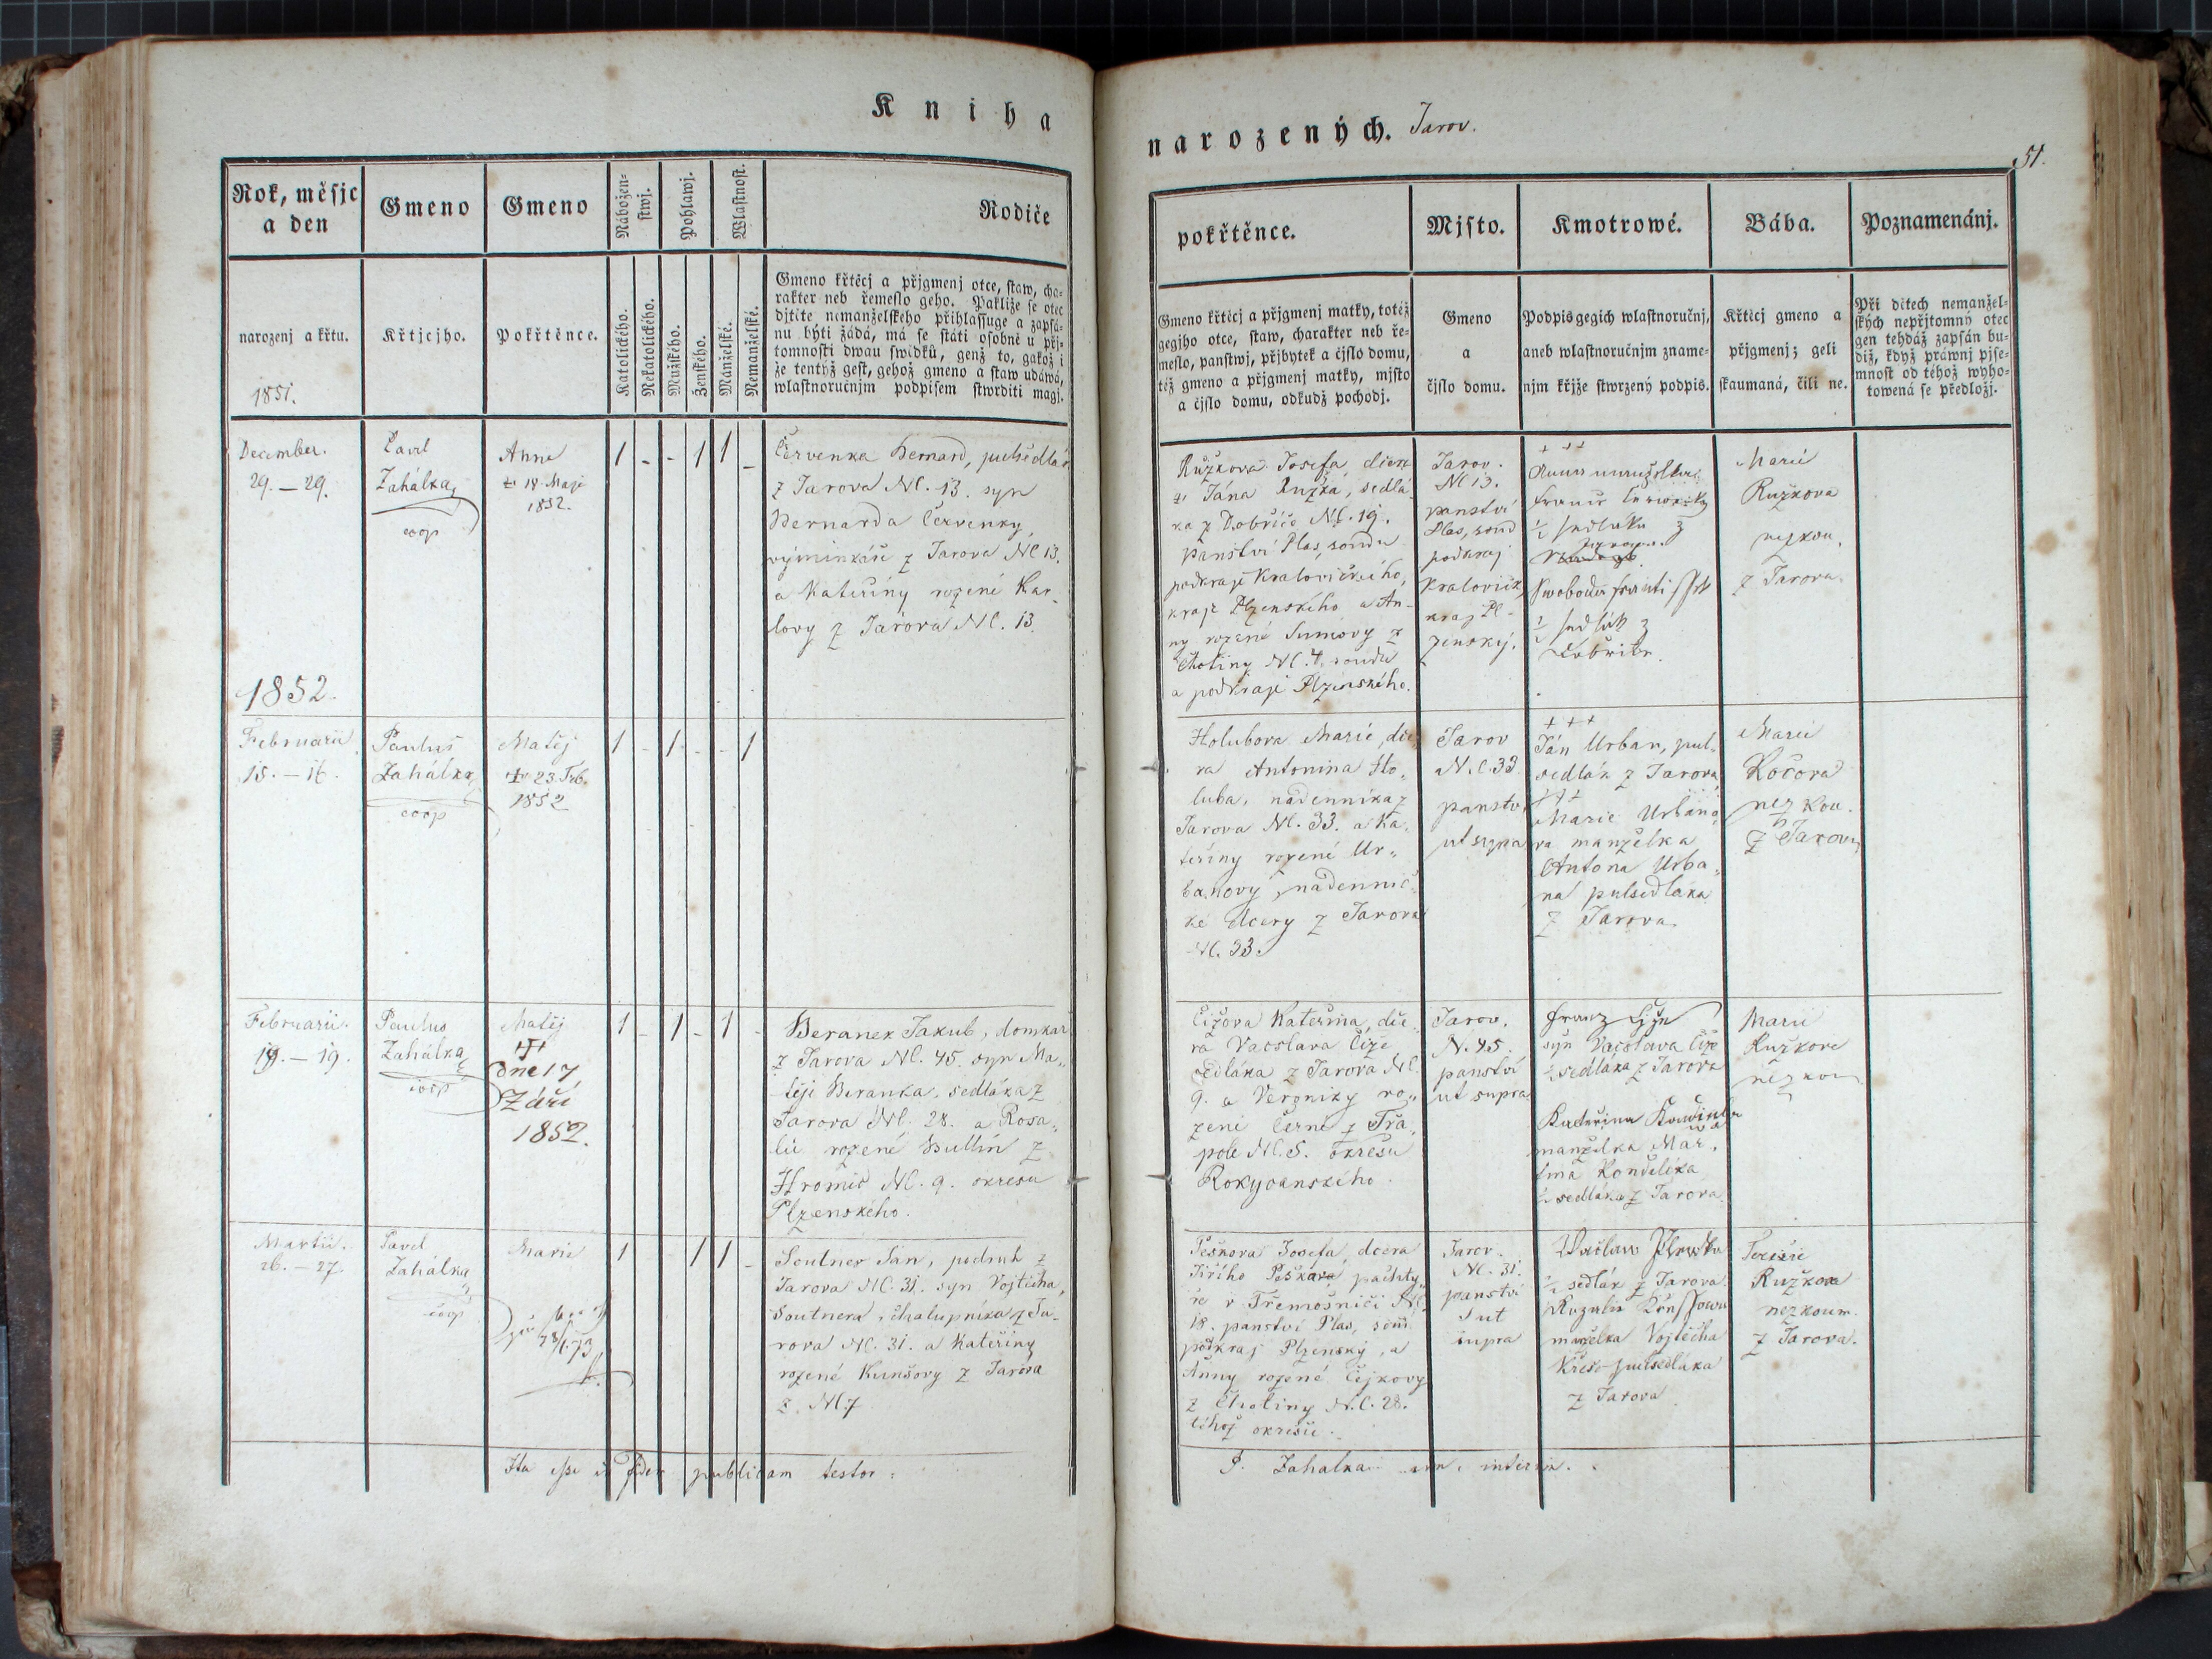 Kniha
narozených. Jarov.
51.
Rok, měsjc
a den
Gmeno
Gmeno
Nábožen-
stwj.
Pohlawj.
Wlastnost.
Rodiče
narozenj a křtu.
1851.
Křtjcjho.
Pokřtěnce.
Katolického.
Nekatolického.
Mužského.
Ženského.
Manželské.
Nemanželské.
Gmeno křtěcj a přjgmenj otce, staw, cha-
rakter neb řemeslo geho. Pakliže se otec
djtěte nemanželského přihlassuge a zapsá-
nu býti žádá, má se státi osobně u přj-
tomnosti dwau swědků, genž to, gakož i
že tentýž gest, gehož gmeno a staw udáwá,
wlastnoručnjm podpisem stwrditi magj.
December.
29. — 29.
Pavel
Zahálka
coop
Anna
18 Maje
1852.
1 - - 1 1 -
Červenka Bernard, pulsedlák
z Jarova NC. 13. syn
Bernarda Červenky
výminkáře z Jarova NC 13.
a Kateřiny rozené Kar-
lovy z Jarova NC. 13.
1852.
Februarii
15. — 16.
Paulus
Zahálka
coop
Matěj
23. Feb.
1852
1 - 1 - - 1
Februarii.
19. — 19.
Paulus
Zahálka
coop
Matěj
Dne 17
Září
1852.
1 - 1 - 1 -
Beranek Jakub, domkář
z Jarova NC. 45. syn Ma-
těje Beranka, sedláka z
Jarova NC. 28. a Rosa-
lie rozené Bullín z
Hromic NC. 9. okresu
Plzenského.
Martii.
26. — 27.
Pavel
Zahálka
coop
Marie
1 1 1 -
Soutner Ján, podruh z
Jarova NC. 31. syn Vojtěcha
Soutnera, chalupníka z Ja-
rova NC. 31. a Kateřiny
rozené Kunšovy z Jarova
z NC. 7
Ita esse in fidem publicam testor:
pokřtěnce.
Mjsto.
Kmotrowé.
Bába.
Poznamenánj.
Gmeno křtěcj a přjgmenj matky, totéž
gegjho otce, staw, charakter neb ře-
meslo, panstwj, přjbytek a čjslo domu,
též gmeno a přjgmenj matky, mjsto
a čjslo domu, odkudž pochodj.
Gmeno
a
čjslo domu.
Podpis gegich wlastnoručnj,
aneb wlastnoručnjm zname-
njm křjže stwrzený podpis.
Křtěcj gmeno a
přjgmenj; geli
skaumaná, čili ne.
Při dětech nemanžel-
ských nepřjtomný otec
gen tehdáž zapsán bu-
diž, když práwnj pjse-
mnost od téhož wyho-
towená se předložj.
Růžkova Josefa, dcera
Jána Růžka, sedlá-
ka z Dobříče NC. 19.
panství Plas, soudu
podkraje Kralovického,
kraje Plzenského a An-
ny rozené Šumovy z
Chotiny NC. 4. soudu
a podkraje Plzenského.
Jarov.
NC 13.
panství
Plas, soud
podkraj
Kralovick,
kraj Pl-
zenský.
+ + +
Anna manželka
½ sedláka z
Jarova.
Swoboda
½ sedlák z
Dobříče.
Marie
Ružkova
nezkou.
z Jarova.
Holubova Marie, dce-
ra Antonina Ho-
luba, nadenníka z
Jarova NC. 33. a Ka-
teřiny rozené Ur-
banovy, nadennic-
ké dcery z Jarova
NC. 33.
Jarov
N.C. 33
panství
ut supra
+ + +
Ján Urban, pul-
sedlák z Jarova
+ + +
Marie Urbano-
va manželka
Antona Urba-
na pulsedláka
z Jarova
Marie
Kočova
nezkou.
z Jarova
Čížova Kateřina, dce-
ra Vacslava Číže
sedláka z Jarova NC.
9. a Veroniky ro-
zené Černé z Třa-
pole NC. 5. okresu
Rokycanského.
Jarov.
N. 45.
panství
ut supra
Franz Čižn
syn Vacslava Číže
½ sedláka z Jarova
Kateřina
manželka Mar-
tina Kondelíka
½ sedláka z Jarova
Marie
Ružkova
nezkou
Peškova Josefa, dcera
Jiřího Peškara pachtý-
ře v Třemošnici NC.
18. panství Plas,
podkraj Plzenský, a
Anny rozené Čejkovy
z Chotiny N.C. 28.
téhož okresu.
Jarov.
NC. 31.
panství
ut
supra
½ sedlák z Jarova.
manželka Vojtěcha
pulsedláka
z Jarova
Terezie
Ružkova
nezkoum.
z Jarova.
P. Zahalka interim.